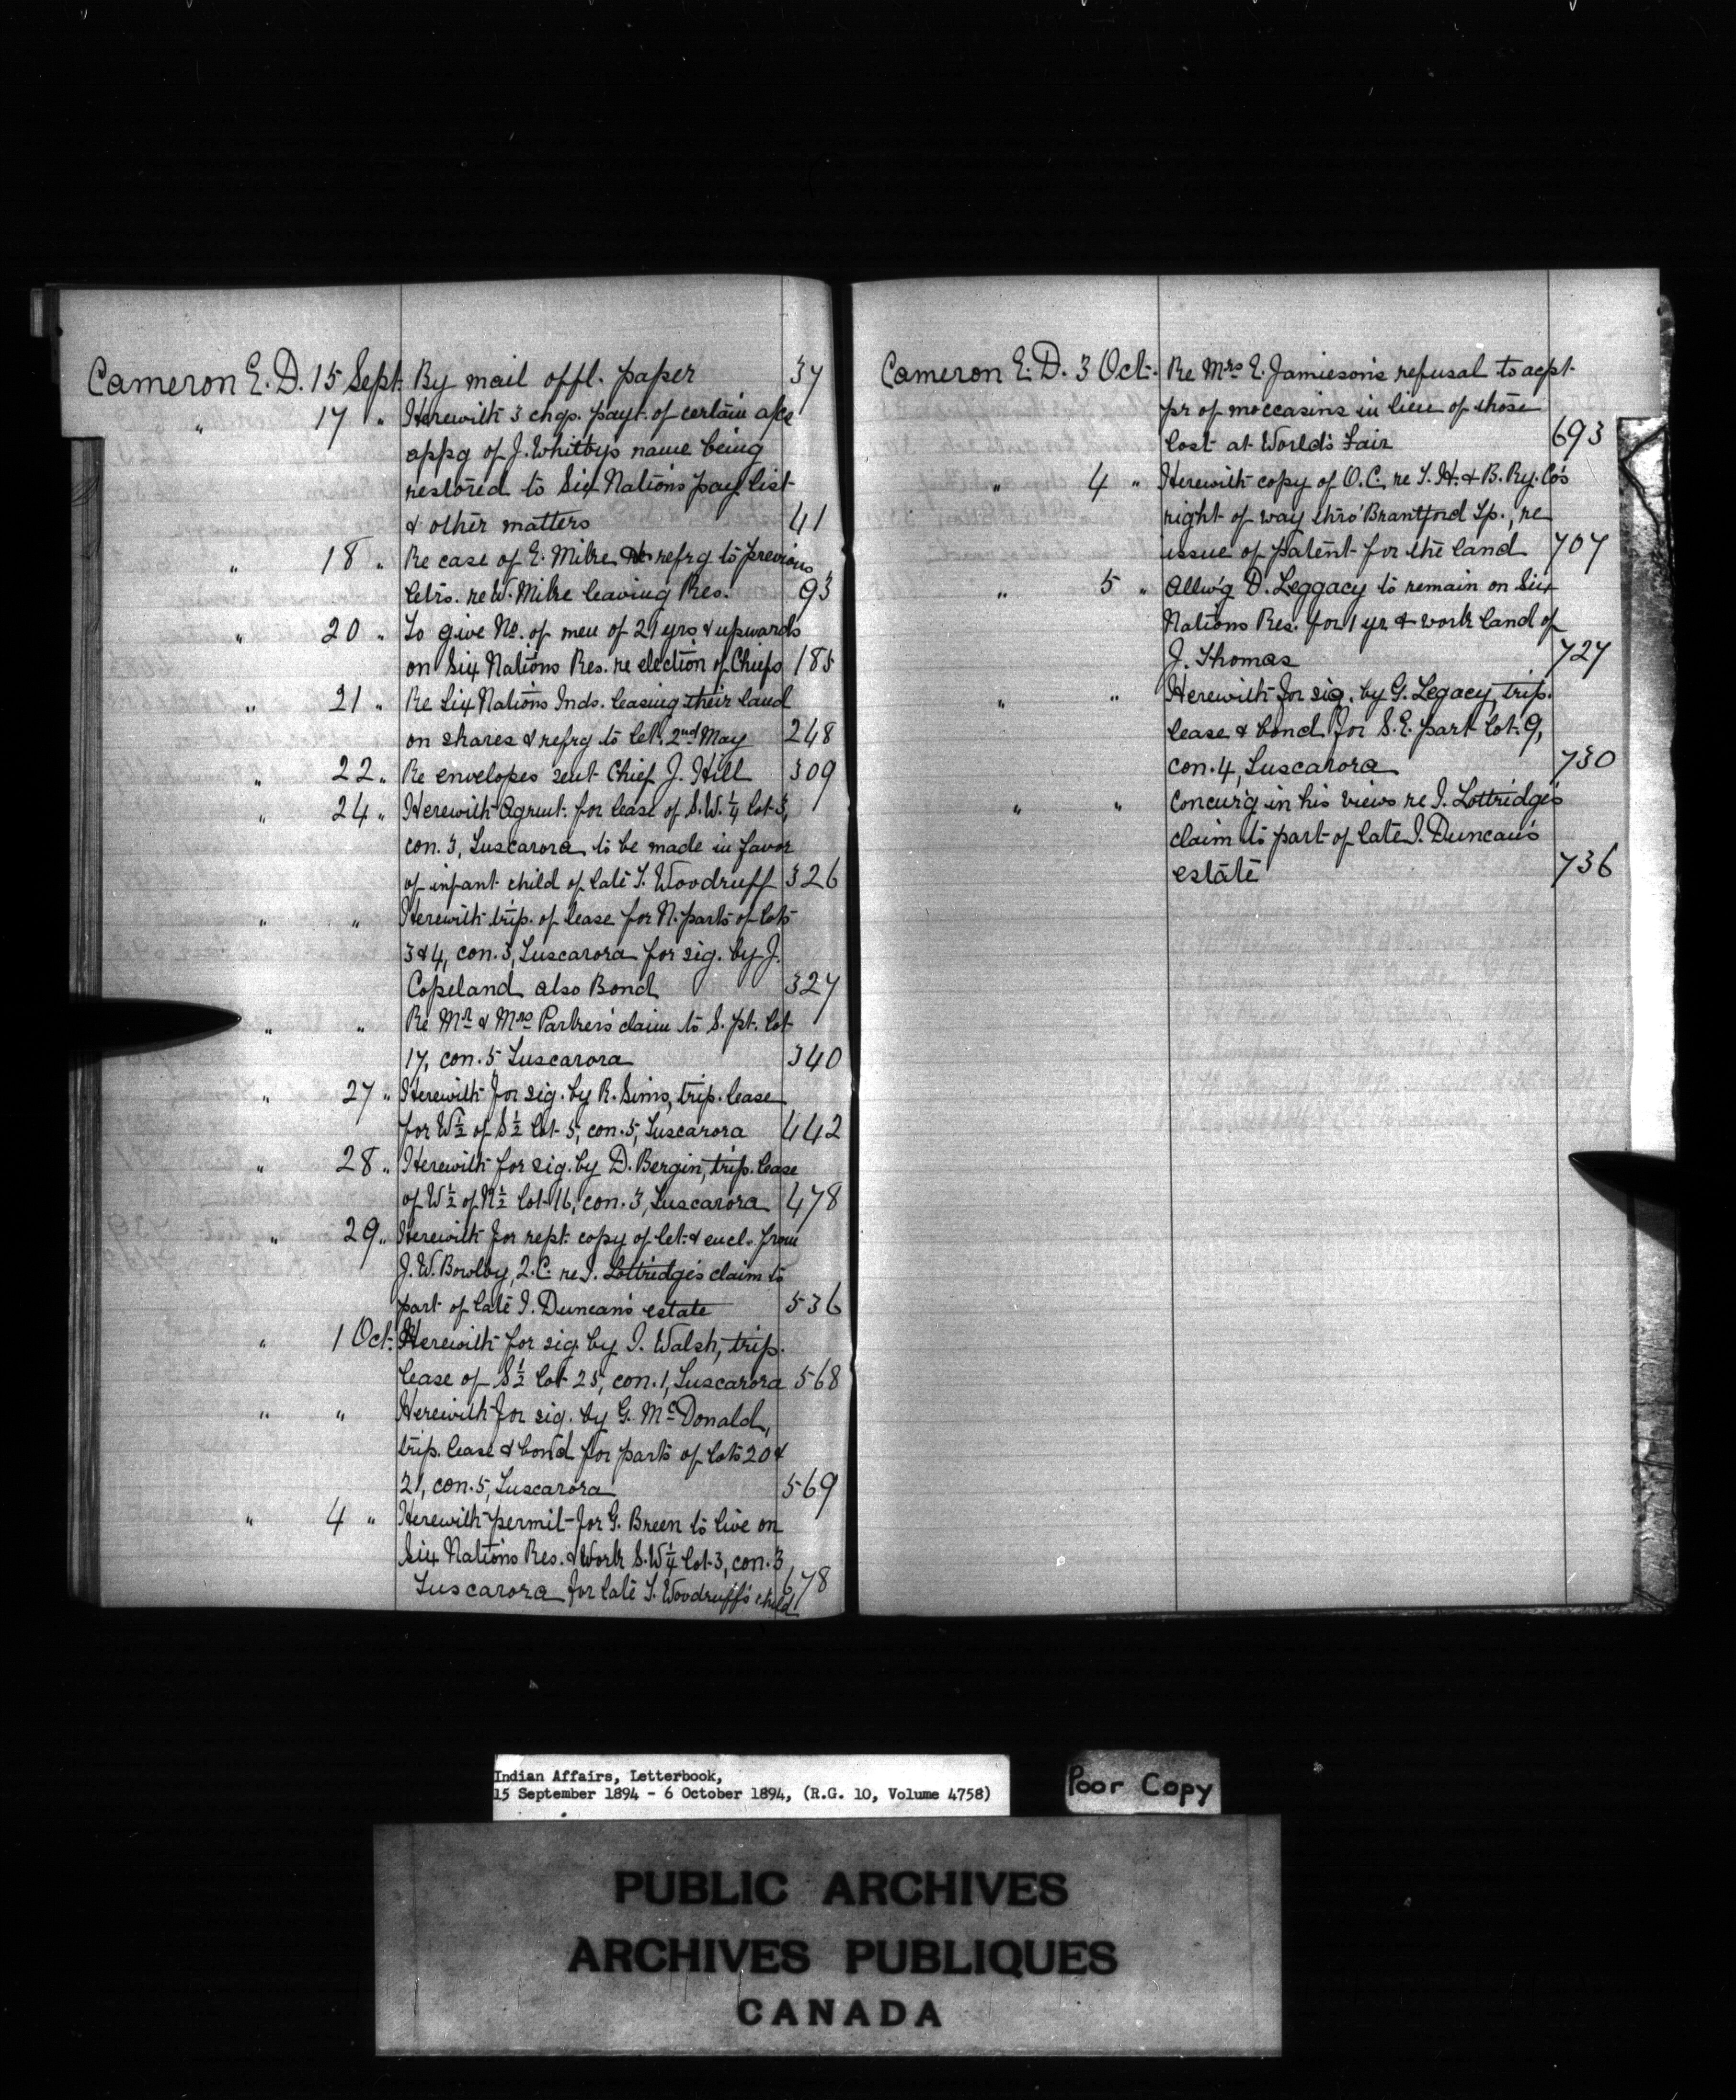 Cameron E. D. 15 Sept. By mail offl. paper 37
" 17 " Herewith 3 chqs. payt. of certain a/cs
appg of J. Whitby's name being
restored to Six Nations pay list
& other matters 41
" 18 " Re case of E. Milre refrg to previous
letrs. re W. Milre leaving Res. 93
" 20 " To give No. of men of 21 yrs & upwards
on Six Nations Res. re election of Chiefs 185
" 21 " Re Six Nations Inds. leasing their land
on shares & refrg to let. 2nd May 248
" 22 " Re envelopes sent Chief J. Hill 309
" 24 " Herewith Agrmt. for lease of S.W. ¼ lot 3,
con. 3, Tuscarora to be made in favor
of infant child of late T. Woodruff 326
" " Herewith trip. of lease for N. parts of lots
3 & 4, con. 3, Tuscarora for sig. by J.
Copeland also Bond 327
" " Re Mr & Mrs Parker's claim to S. pt. lot
17, con. 5 Tuscarora 340
" 27 " Herewith for sig. by R. Sims, trip. lease
for W½ of S½ lot 5, con. 5, Tuscarora 442
" 28 " Herewith for sig. by D. Bergin, trip. lease
of W½ of N½ lot 16, con. 3, Tuscarora 478
" 29 " Herewith for rept. copy of let. & encl. from
J. W. Bowlby, Q.C. re I. Lottridge's claim to
part of late I. Duncan's estate 536
" 1 Oct. Herewith for sig. by I. Walsh, trip.
lease of S½ lot 25, con. 1, Tuscarora 568
" " Herewith for sig. by G. McDonald,
trip. lease & bond for parts of lots 20 &
21, con. 5, Tuscarora 569
" 4 " Herewith permit for G. Breen to live on
Six Nations Res. & Work S.W¼ lot 3, con. 3
Tuscarora for late T. Woodruff's child 678
Cameron E. D. 3 Oct. Re Mrs E. Jamieson's refusal to acpt.
pr of moccasins in lieu of those
lost at World's Fair 693
" 4 " Herewith copy of O.C. re T. H. & B. Ry. Co's
right of way thro' Brantford Tp., re
issue of patent for the land 707
" 5 " Allw'g D. Leggacy to remain on Six
Nations Res. for 1 yr & work land of
J. Thomas 727
" " Herewith for sig. by G. Legacy, trip.
lease & bond for S.E. part lot 9,
con. 4, Tuscarora 730
" " Concur'g in his views re I. Lottridge's
claim to part of late I. Duncan's
estate 736
Indian Affairs, Letterbook,
15 September 1894 - 6 October 1894, (R.G. 10, Volume 4758)
Poor Copy
PUBLIC ARCHIVES
ARCHIVES PUBLIQUES
CANADA